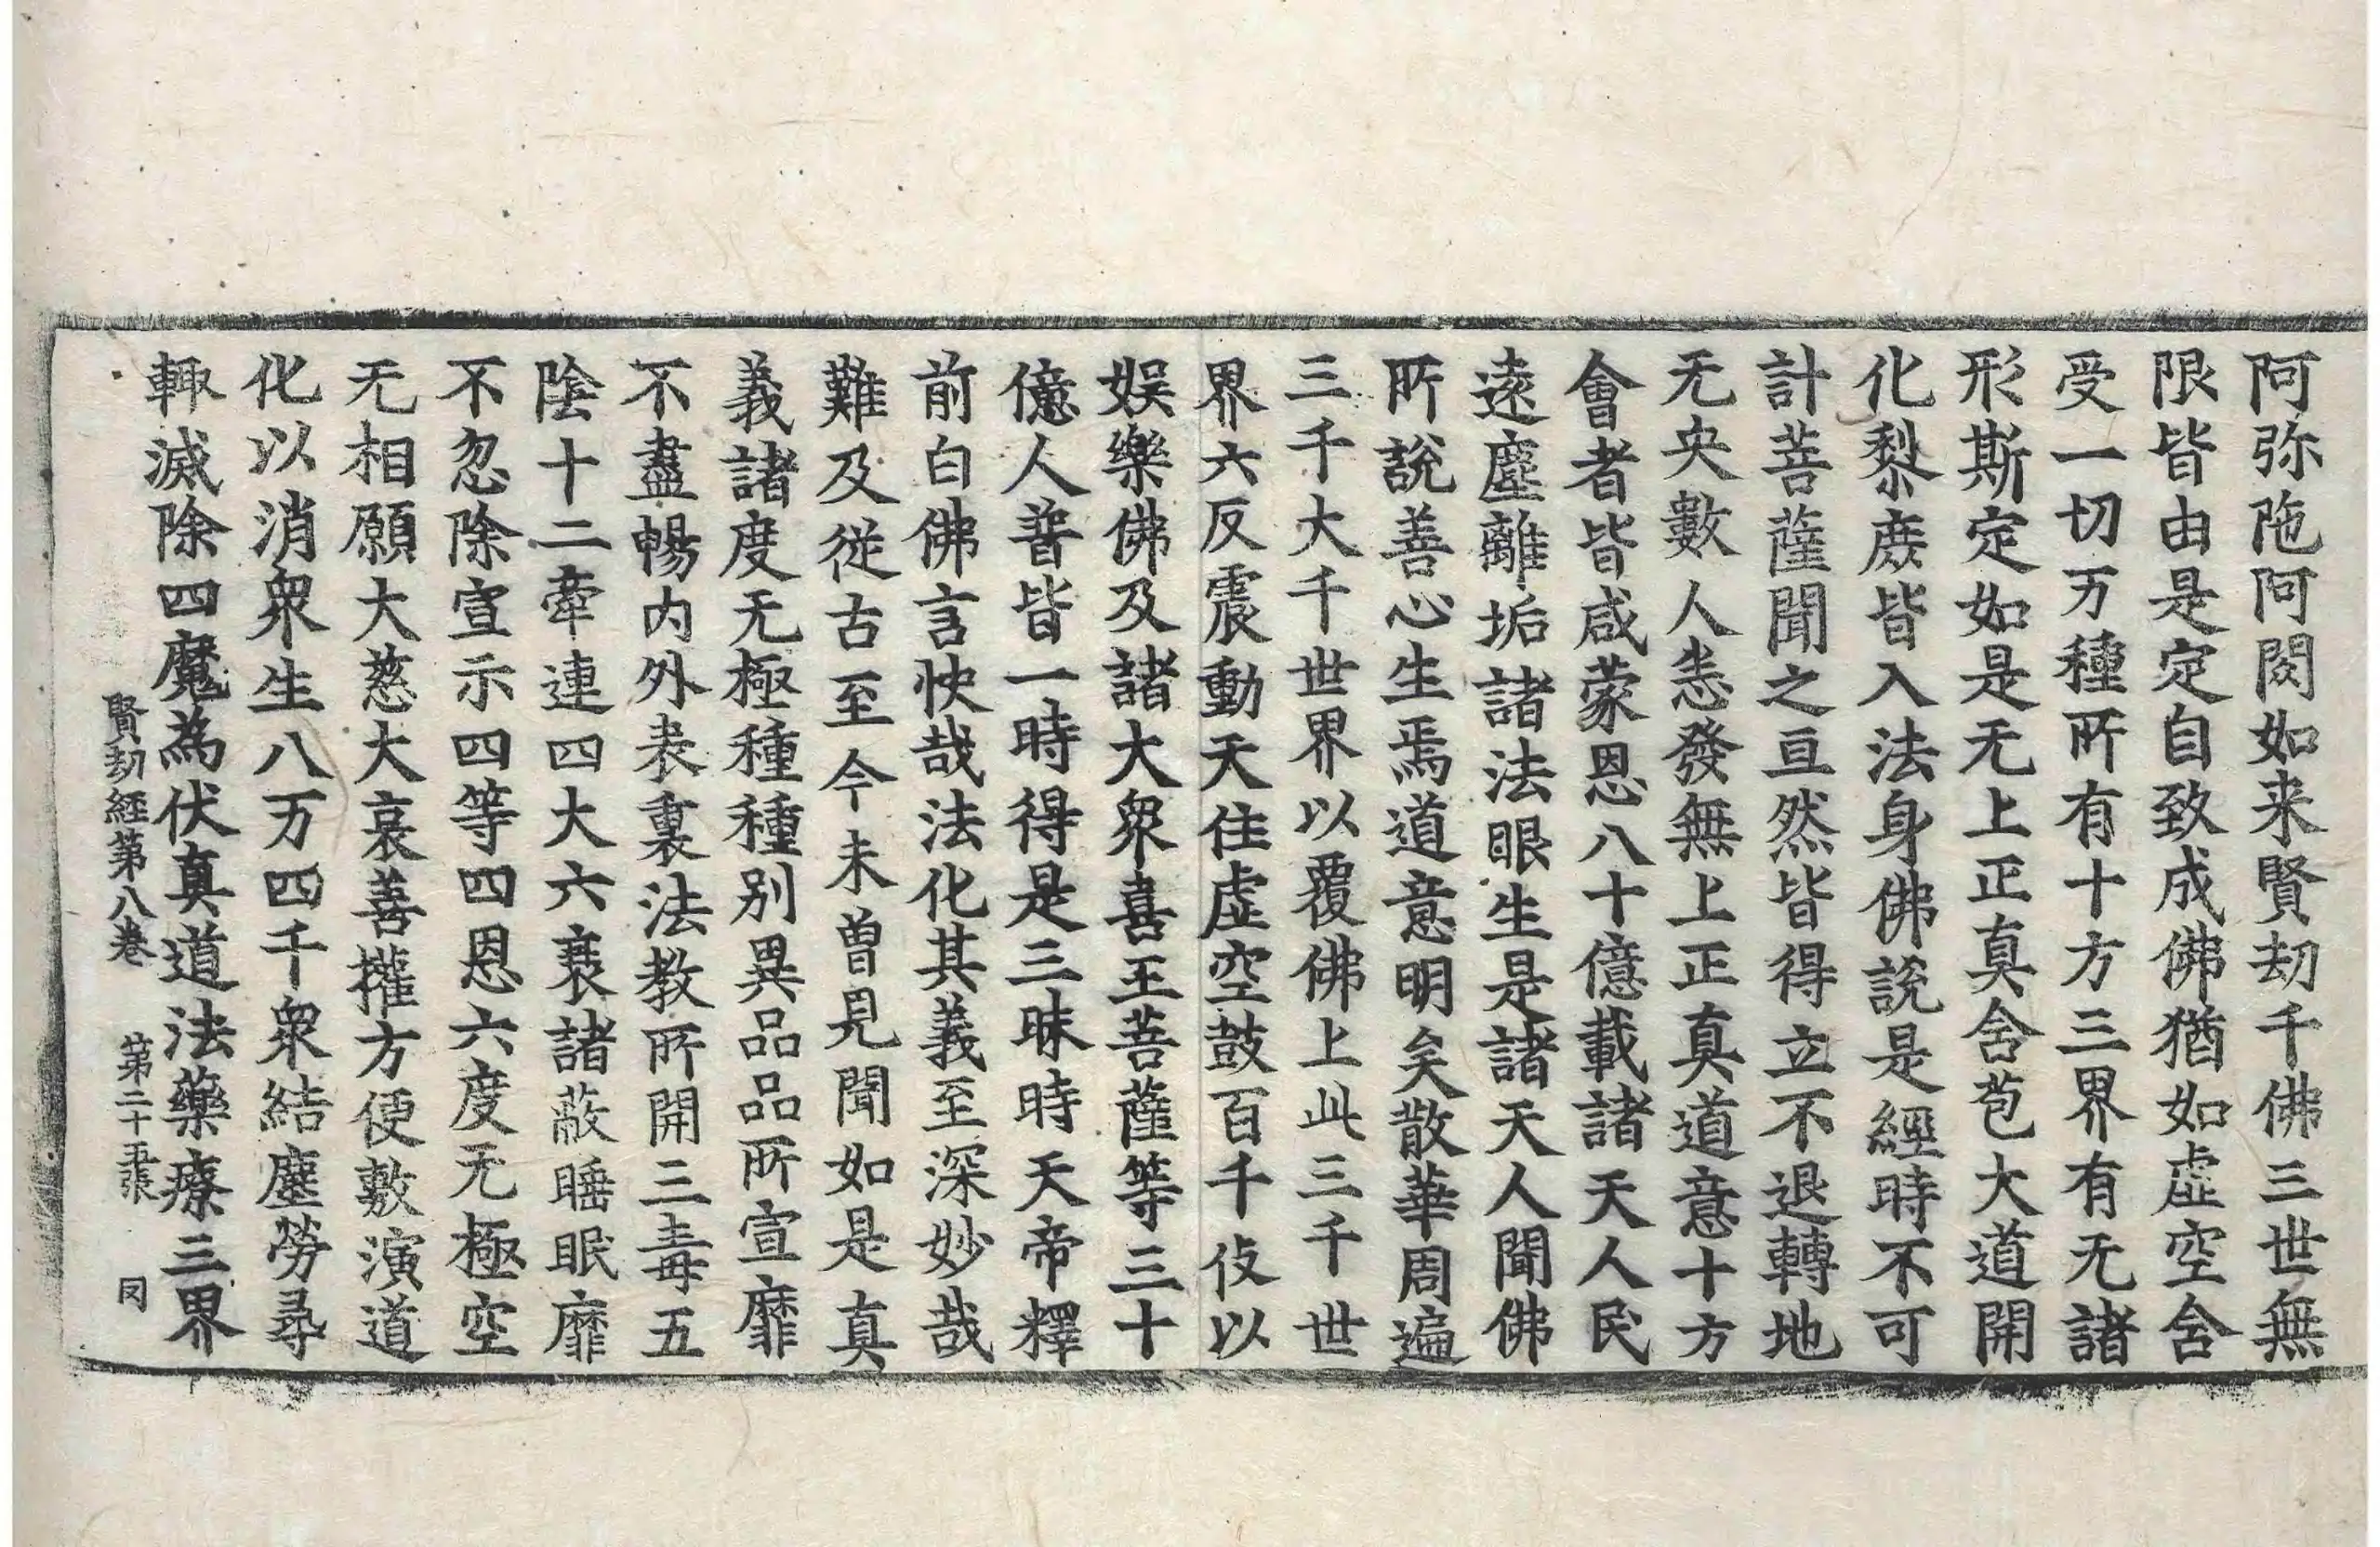 阿弥陁阿閦如来賢劫千佛三世無
限皆由是定自致成佛猶如虛空含
受一切万種所有十方三界有无諸
形斯定如是无上正真含苞大道開
化黎庶皆入法身佛說是經時不可
計菩薩聞之亘然皆得立不退轉地
无央數人恚發無上正真道意十方
會者皆咸蒙恩八十億載諸天人民
遠塵離垢諸法眼生是諸天人聞佛
所說善心生焉道意明矣散華周遍
三千大千世界以覆佛上此三千世
界六反震動天住虛空鼓百千伎以
娛樂佛及諸大衆喜王菩薩等三十
億人普皆一時得是三昧時天帝釋
前白佛言快哉法化其義至深妙哉
難及從古至今未曾見聞如是真
義諸度无極種種別異品品所宣靡
不盡暢内外表裏法教所開三毒五
陰十二牽連四大六衰諸蔽睡眠靡
不忽除宣示四等四恩六度无極空
无相願大慈大哀善權方便敷演道
化以消衆生八万四千衆結塵勞尋
輙滅除四魔為伏真道法藥療三界
賢劫經第八卷 第二十五張 同